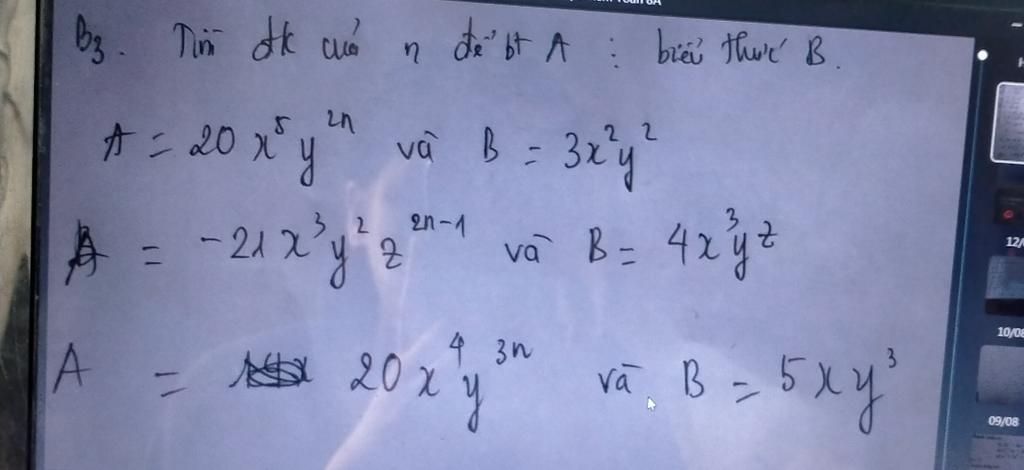 Toán 8A
B3. Tìm đk của n để bt A : biểu thức B.
A = 20 x⁵ y²ⁿ và B = 3x²y²
A = -21 x³ y² z²ⁿ⁻¹ và B = 4x³yz
A = 20 x⁴ y³ⁿ và B = 5xy³
12/
10/08
09/08